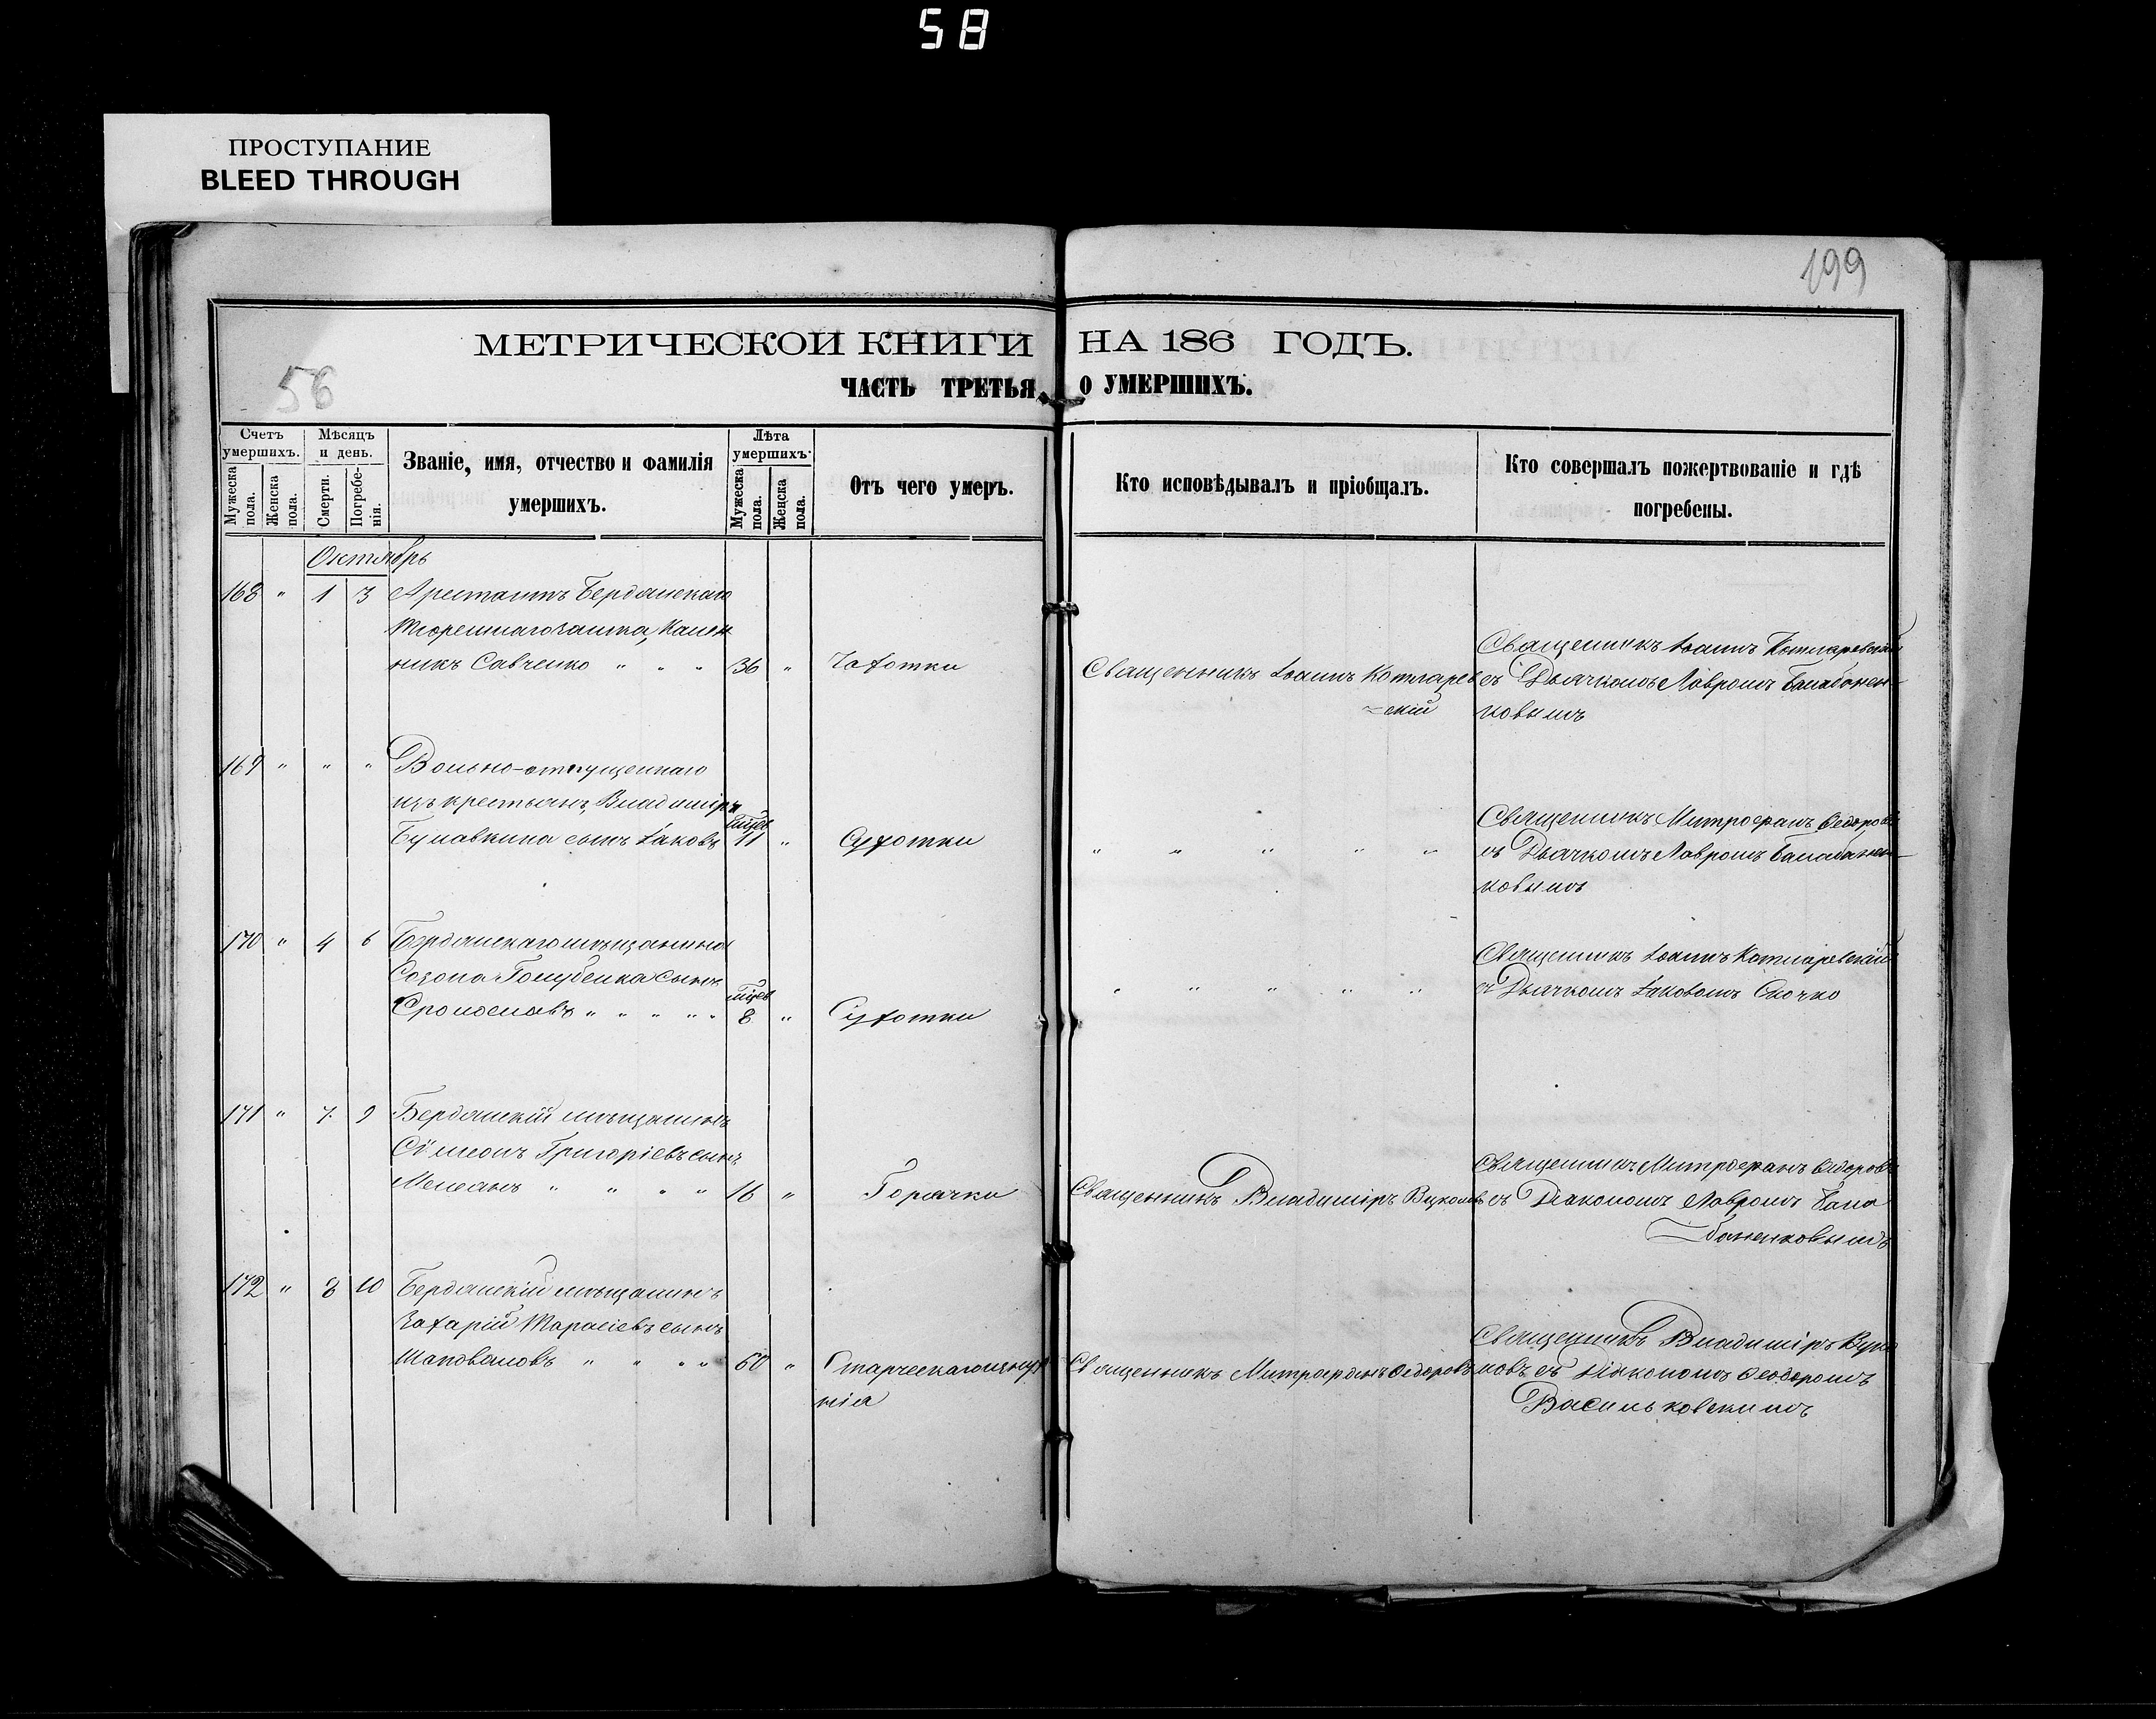 58
ПРОСТУПАНИЕ
BLEED THROUGH
199
МЕТРИЧЕСКОЙ КНИГИ НА 186 ГОДЪ.
56
ЧАСТЬ ТРЕТЬЯ, О УМЕРШИХЪ.
Счетъ умершихъ.
Мужеска пола.
Женска пола.
Мѣсяцъ и день.
Смерти.
Погребенія.
Званіе, имя, отчество и фамилія
умершихъ.
Лѣта умершихъ.
Мужеска пола.
Женска пола.
Отъ чего умеръ.
Кто исповѣдывалъ и пріобщалъ.
Кто совершалъ пожертвованіе и гдѣ
погребены.
Октябрь
168 " 1 3 Арестантъ Бердянскаго
Тюремнаго замка,
Савченко " " " 36 " Чахотки
Священникъ Іоаннъ Котлярев
=скій
Священникъ Іоаннъ Котляревскій
съ Дьячкомъ Лавромъ Балабонен-
ковымъ
169 " " " Вольно-отпущеннаго
изъ крестьянъ, Владиміра
Булавкина сынъ Іаковъ мѣсе 11 " Сухотки
" " " " "
Священникъ Митрофанъ Федоровъ
съ Дьячкомъ Лавромъ Балабонен-
ковымъ
170 " 4 6 Бердянскаго мѣщанина
Созона Голубенка сынъ
" " " " " 8 " Сухотки
" " " " "
Священникъ Іоаннъ Котляревскій
съ Дьячкомъ Іаковомъ Скочко
171 " 7 9 Бердянскій мѣщанинъ
Сѵмеонъ Григоріевъ сынъ
" " " " 16 " Горячки
Священникъ Владиміръ
Священникъ Митрофанъ Федоровъ
съ Діакономъ Лавромъ Бала
=боненковымъ
172 " 8 10 Бердянскій мѣщанинъ
Захарій Тарасіевъ сынъ
Шаповаловъ " " " " 60 " Старческаго изнуре
нія
Священникъ Митрофанъ Федоровъ
Священникъ Владиміръ
съ Діакономъ Феодоромъ
Васильковскимъ